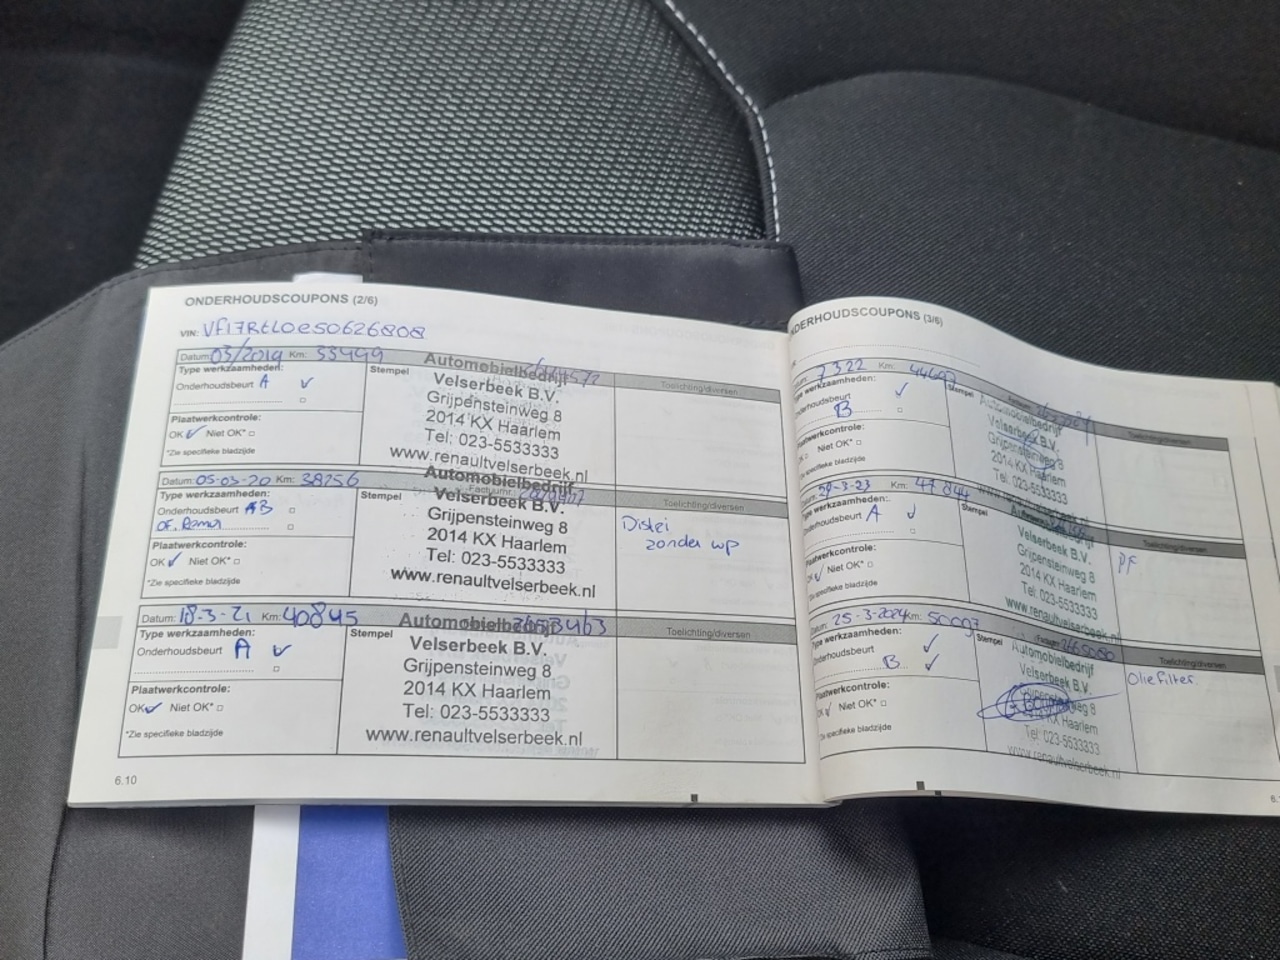 ONDERHOUDSCOUPONS (2/6)
VIN: Vf17RtL0e50626808
Datum: 03/2019 Km: 33499
Type werkzaamheden:
Onderhoudsbeurt A ✓
Plaatwerkcontrole:
OK ✓ Niet OK* □
*Zie specifieke bladzijde
Stempel
Automobielbedrijf
Velserbeek B.V.
Grijpensteinweg 8
2014 KX Haarlem
Tel: 023-5533333
www.renaultvelserbeek.nl
Toelichting/diversen
Datum: 05-03-20 Km: 38256
Factuurnr.:
Type werkzaamheden:
Onderhoudsbeurt AB □
Plaatwerkcontrole:
OK ✓ Niet OK* □
*Zie specifieke bladzijde
Stempel
Automobielbedrijf
Velserbeek B.V.
Grijpensteinweg 8
2014 KX Haarlem
Tel: 023-5533333
www.renaultvelserbeek.nl
Toelichting/diversen
zonder wp
Datum: 18-3-21 Km: 40845
Type werkzaamheden:
Onderhoudsbeurt A ✓
Plaatwerkcontrole:
OK ✓ Niet OK* □
*Zie specifieke bladzijde
Stempel
Automobielbedrijf
Velserbeek B.V.
Grijpensteinweg 8
2014 KX Haarlem
Tel: 023-5533333
www.renaultvelserbeek.nl
Toelichting/diversen
6.10
NDERHOUDSCOUPONS (3/6)
Km:
Type werkzaamheden:
Onderhoudsbeurt ✓
B □
Plaatwerkcontrole:
Niet OK* □
*Zie specifieke bladzijde
Stempel
Automobielbedrijf
Velserbeek B.V.
Grijpensteinweg 8
2014 KX Haarlem
Tel: 023-5533333
Toelichting/diversen
29-3-23 Km: 47844
Type werkzaamheden:
Onderhoudsbeurt A ✓
Plaatwerkcontrole:
Niet OK* □
*Zie specifieke bladzijde
Stempel
Velserbeek B.V.
Grijpensteinweg 8
2014 KX Haarlem
Tel: 023-5533333
www.renaultvelserbeek.nl
Toelichting/diversen
PF
Datum: 25-3-2024 Km: 50097
Type werkzaamheden:
Onderhoudsbeurt ✓
B ✓
Plaatwerkcontrole:
Niet OK* □
*Zie specifieke bladzijde
Stempel
Automobielbedrijf
Velserbeek B.V.
KX Haarlem
Tel: 023-5533333
www.renaultvelserbeek.nl
Toelichting/diversen
Oliefilter.